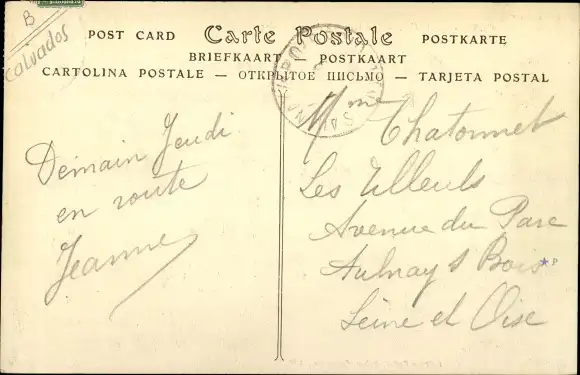 B
Calvados
POST CARD Carte Postale POSTKARTE
BRIEFKAART POSTKAART
CARTOLINA POSTALE — ОТКРЫТОЕ ПИСЬМО — TARJETA POSTAL
Demain Jeudi
en route
Jeanne
Mme Chatonnet
Les Tilleuls
Avenue du Parc
Aulnay s Bois
Seine et Oise